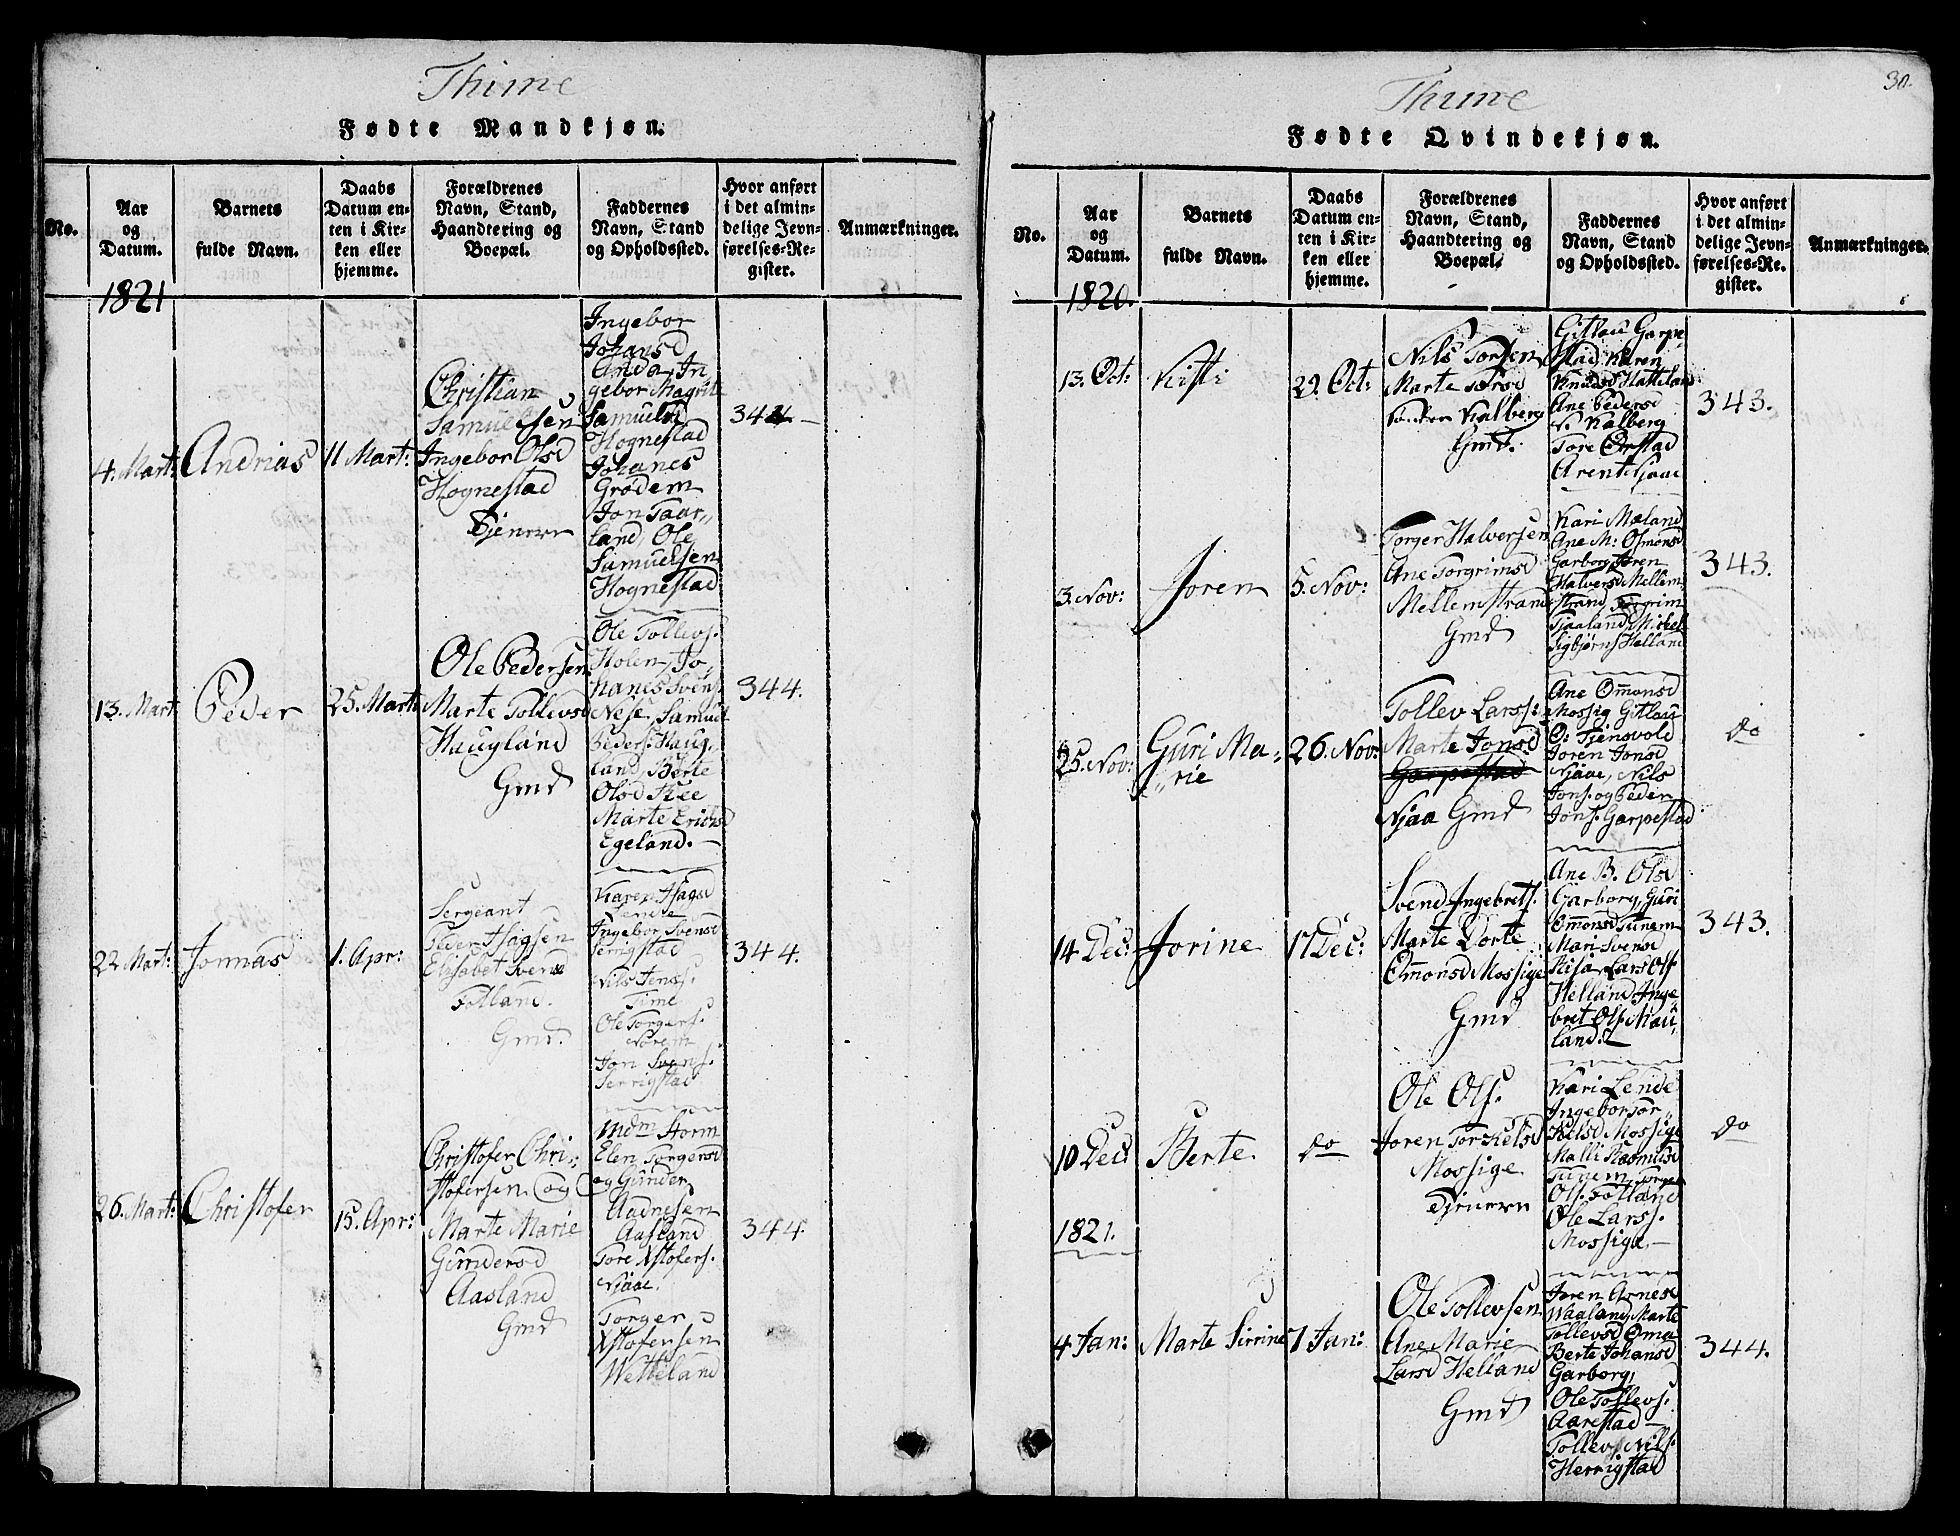 Thime
Fødte Mandkjøn.
No.
Aar
og
Datum.
Barnets
fulde Navn.
Daabs
Datum en-
ten i Kir-
ken eller
hjemme.
Forældrenes
Navn, Stand,
Haandtering og
Boepæl.
Faddernes
Navn, Stand
og Opholdssted.
Hvor anført
i det almin-
delige Jevn-
førelses-Re-
gister.
Anmærkninger.
1821
4. Mart:
Andrias
11 Mart:
Christian
Samuelsen
Ingebor Olsd
Hognestad
Tjenere
Ingebor
Johansd
Anda, In
gebor Magrite
Samuelsd
Hognestad
Johanes
Grødem
Jon Taar„
land, Ole
Samuelsen
Hognestad
344
13. Mart
Peder
25. Mart:
Ole Pedersen
Marte Tollevsd
Haugland
Gmd
Ole Tollevs.
Holen, Jo„
hanes Svens.
Nese, Samuel
Peders: Haug„
land, Berte
Olsd Skee
Marte Ericksd
Egeland.
344.
22 Mart:
Jonnas
1. Apr:
Sergeant
Peder Isagsen
Elisabet Svensd
Fotland.
Gmd.
Karen Isagsd
Lende
Ingebor Svensd
Serrigstad
Nils Jens.
Time
Ole Torgers.
Norem
Jon Svens.
Serrigstad
344.
26. Mart:
Christofer
15. Apr:
Christofer Chri„
stofersen og
Marte Marie
Gundersd
Aasland
Gmd
Mdm Storm
Elen Torgersd
og Gunder
Aadnesen
Aasland
Tore Xstofers.
Njaae.
Torger
Xstofersen
Wetteland
344.
30.
Thime
Fødte Qvindekjøn.
No.
Aar
og
Datum.
Barnets
fulde Navn.
Daabs
Datum en-
ten i Kir-
ken eller
hjemme.
Forældrenes
Navn, Stand,
Haandtering og
Boepæl.
Faddernes
Navn, Stand
og Opholdssted.
Hvor anført
i det almin-
delige Jevn-
førelses-Re-
gister.
Anmærkninger.
1820.
13. Oct:
Kisti
29. Oct:
Nils Torsen
Marte Torsd
Kalberg
Gmd.
Gitlau Garpe
stad Karen
Knudsd Hatteland
Ane Pedersd
N. Kalberg
Tore Orstad
Arent Njaae
343.
3. Nov:
Joren
5. Nov:
Torger Halversen
Ane Torgrimsd
Mellemstrand
Gmd
Kari Mæland
Ane M: Osmonsd
Garborg, Joren
Halversd Mellem
strand, Torgrim
Tjaaland, Mickel
Sigbjørns Helland
343.
25. Nov:
Guri Ma„
„rie
26. Nov:
Tollev Larss:
Marte Jonsd
Garpestad
Njaa Gmd
Ane Omonsd
Mossig Gitlau
O: Tjensvold
Joren Jonsd
Njaae, Nils
Jons. og Peder
Jons. Garpestad
do
14 Dec:
Jorine
17 Dec:
Svend Ingebrets.
Marte Dorte
Omonsd Mossige
Gmd
Ane B. Olsd
Garborg, Guri
Omonsd Tunem
Mari Svensd
Risa, Lars Ols.
Helland, Inge
bret Ols. Mau„
land.
343.
10 Dec:
Berte
do
Ole Ols.
Joren Torkelsd
Mossige
Tjenere
Kari Lende
Ingebor Tor„
kelsd Mossige
Malli Rasmusd
Tunem, Torger
Ols. Fotland
Ole Larss.
Mossige.
do
1821.
4 Jan:
Marte Sirrine
7 Jan:
Ole Tollevsen
Ane Marie
Larsd Helland
Gmd
Joren Arnesd
Waaland, Marte
Tollevsd Oma
Berte Johansd
Garborg,
Ole Tollevs.
Aarestad
Tollev Nils.
Herrigstad
344.